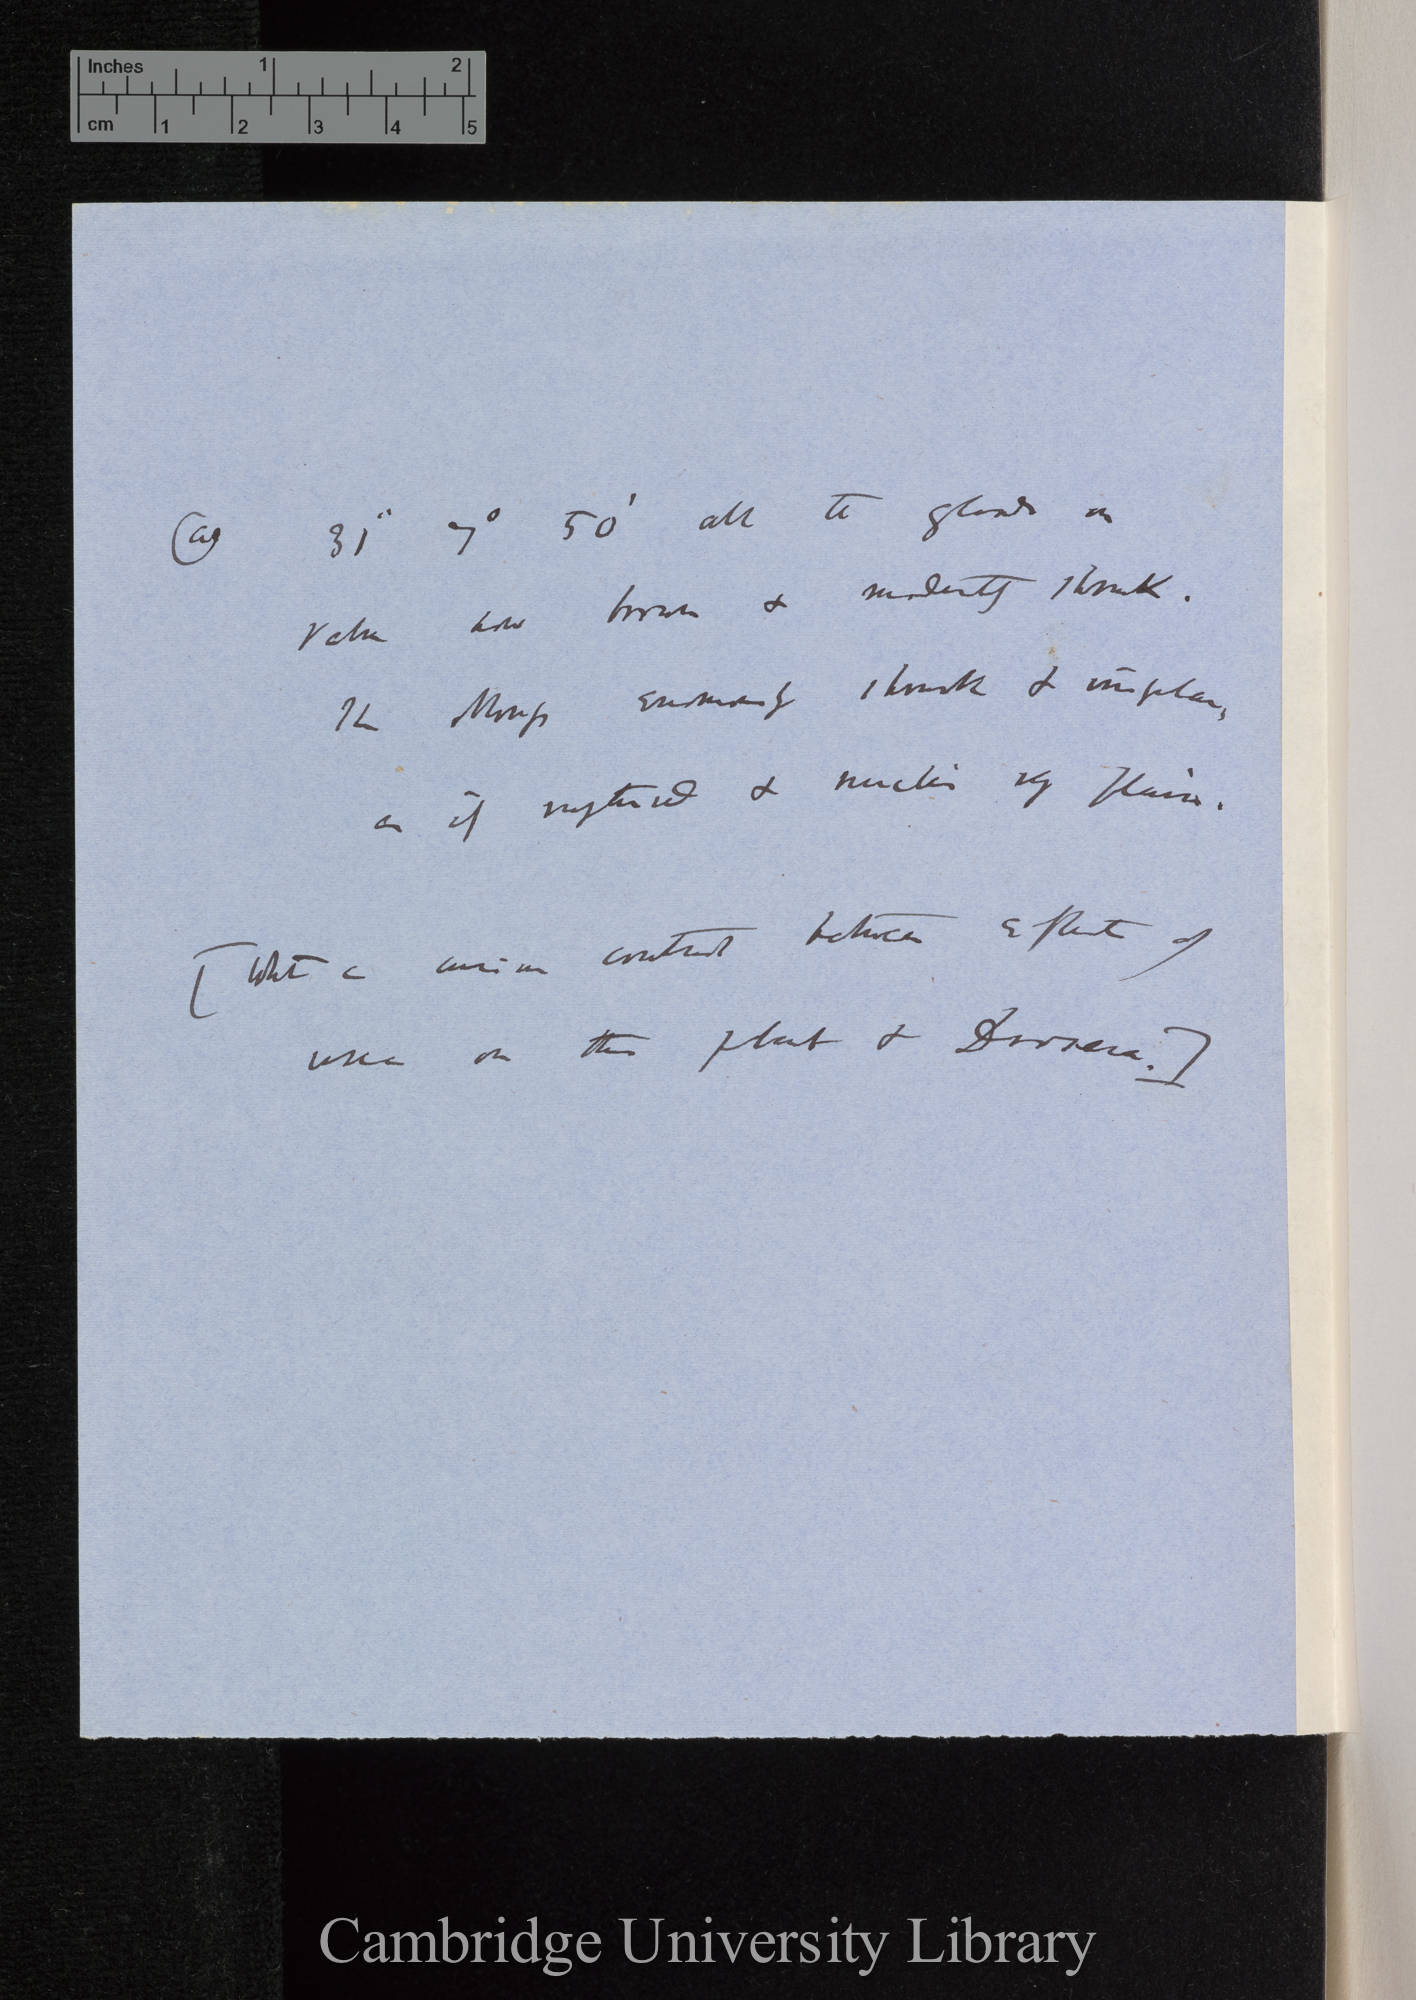 Inches 1 2
cm 1 2 3 4 5
31° 7° 50' all the glands on
valve now brown & moderately shrunk.
The oblongs enormously shrunk & irregular,
as if ruptured & nuclei very plain.
[What a curious contrast between effects of
urea on this plant & Drosera.]
Cambridge University Library